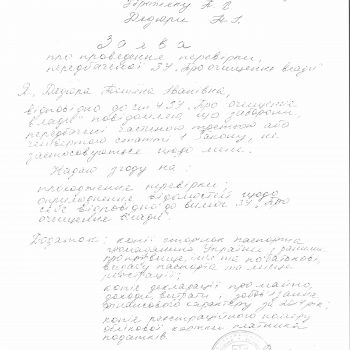 Заява
про проведення перевірки,
передбаченої ЗУ „Про очищення влади"
Я,
відповідно до ст 4 ЗУ „Про очищення
влади" повідомляю, що заборони,
передбачені частиною третьою або
четвертою статті 1 Закону, не
застосовуються щодо мене.
Надаю згоду на:
проходження перевірки;
оприлюднення відомостей щодо
себе відповідно до вимог ЗУ „Про
очищення влади".
Додаток: копії сторінок паспорта
громадянина України з даними
про прізвище, ім'я та по батькові,
видачу паспорта та місце
реєстрації;
копія декларації про майно,
доходи, витрати і зобов'язання
фінансового характеру за рік;
копія реєстраційного номеру
облікової картки платника
податків.